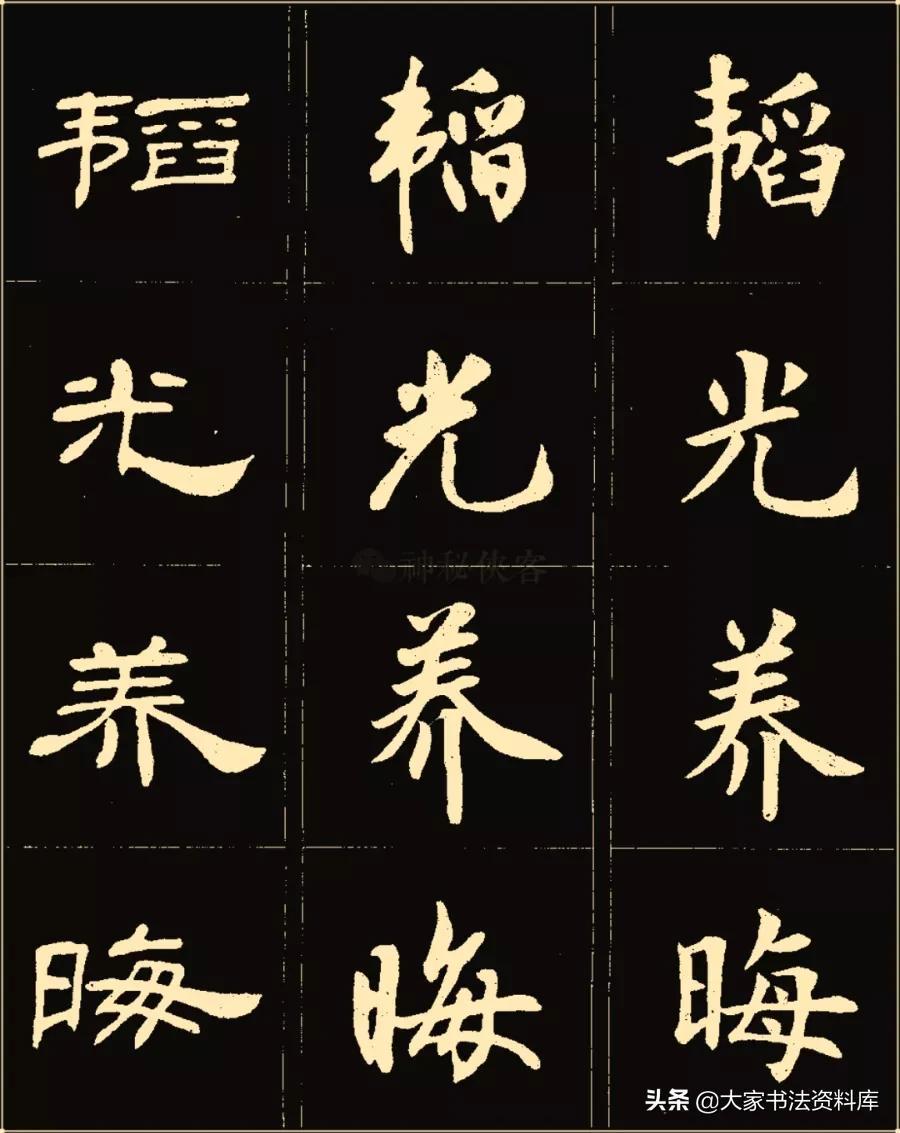 韬 韬 韬
光 光 光
养 养 养
晦 晦 晦
神秘侠客
头条 @大家书法资料库